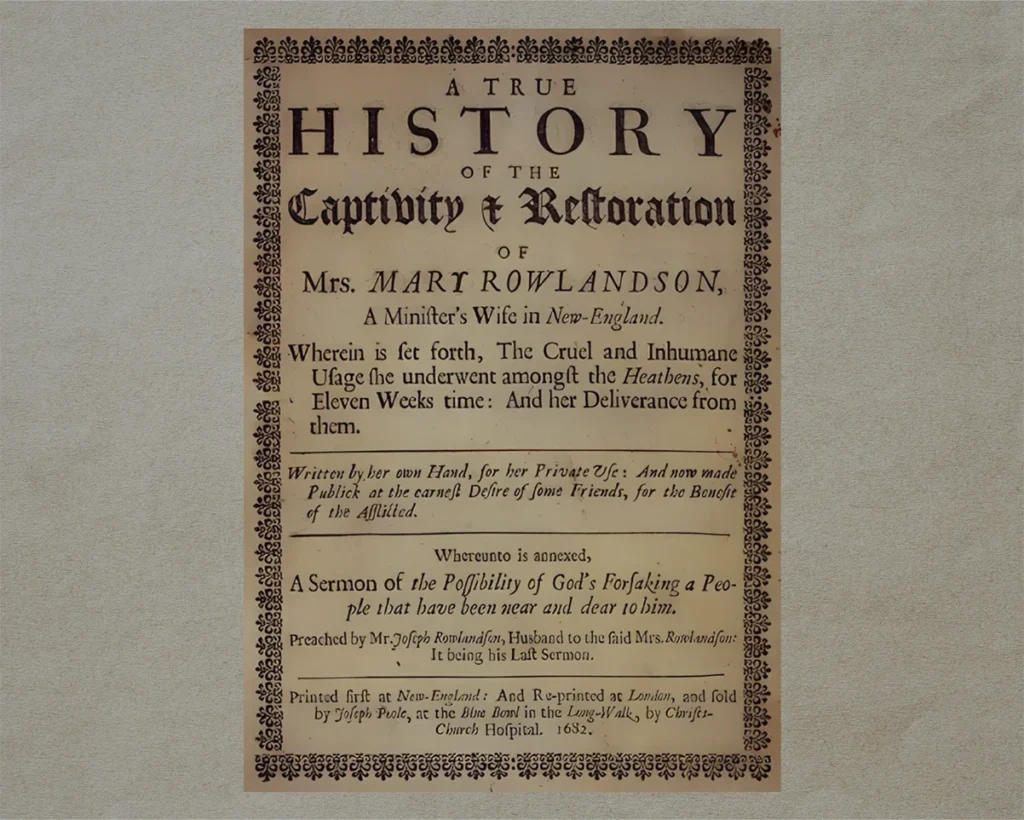 A TRUE
HISTORY
OF THE
Captivity & Reſtoration
OF
Mrs. MARY ROWLANDSON,
A Miniſter's Wife in New-England.
Wherein is ſet forth, The Cruel and Inhumane
Uſage ſhe underwent amongſt the Heathens, for
Eleven Weeks time: And her Deliverance from
them.
Written by her own Hand, for her Private Uſe: And now made
Publick at the earneſt Deſire of ſome Friends, for the Benefit
of the Afflicted.
Whereunto is annexed,
A Sermon of the Poſſibility of God's Forſaking a Peo-
ple that have been near and dear to him.
Preached by Mr. Joſeph Rowlandſon, Husband to the ſaid Mrs. Rowlandſon:
It being his Laſt Sermon.
Printed firſt at New-England: And Re-printed at London, and ſold
by Joſeph Poole, at the Blue Bowl in the Long-Walk, by Chriſts-
Church Hoſpital. 1682.